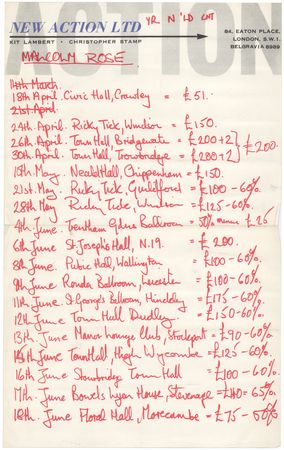 ACTION
NEW ACTION LTD
YR N 'LD CNT
KIT LAMBERT • CHRISTOPHER STAMP
84, EATON PLACE,
LONDON, S.W.1.
BELGRAVIA 8989
MALCOLM ROSE.
14th March.
18th April. Civic Hall, Crawley = £51.
21st April.
24th April. Ricky Tick, Windsor = £150.
26th April. Town Hall Bridgewater = £200+2 } £200.
30th April. Town Hall, Trowbridge = £200+2
15th May. Neald Hall, Chippenham = £150.
21st May. Ricky Tick, Guildford = £100-60%.
28th May. Ricky Tick, Windsor = £125-60%.
4th June. Trentham Gdns Ballroom = 50% minus £25
6th June. St Joseph's Hall, N.19. = £200.
8th June. Public Hall, Wallington = £100-60%.
9th June. Ronda Ballroom, Leicester = £100-60%.
11th June. St. George's Ballroom, Hinckley = £175-60%.
12th June Town Hall Dudley. = £150-60%
13th June Manor Lounge Club, Stockport = £90-60%
15th June Town Hall, High Wycombe = £125-60%.
16th June Stourbridge Town Hall = £100-60%
17th June Bowes Lyon House, Stevenage = £140=65%.
18th June Floral Hall, Morecambe = £75-50%